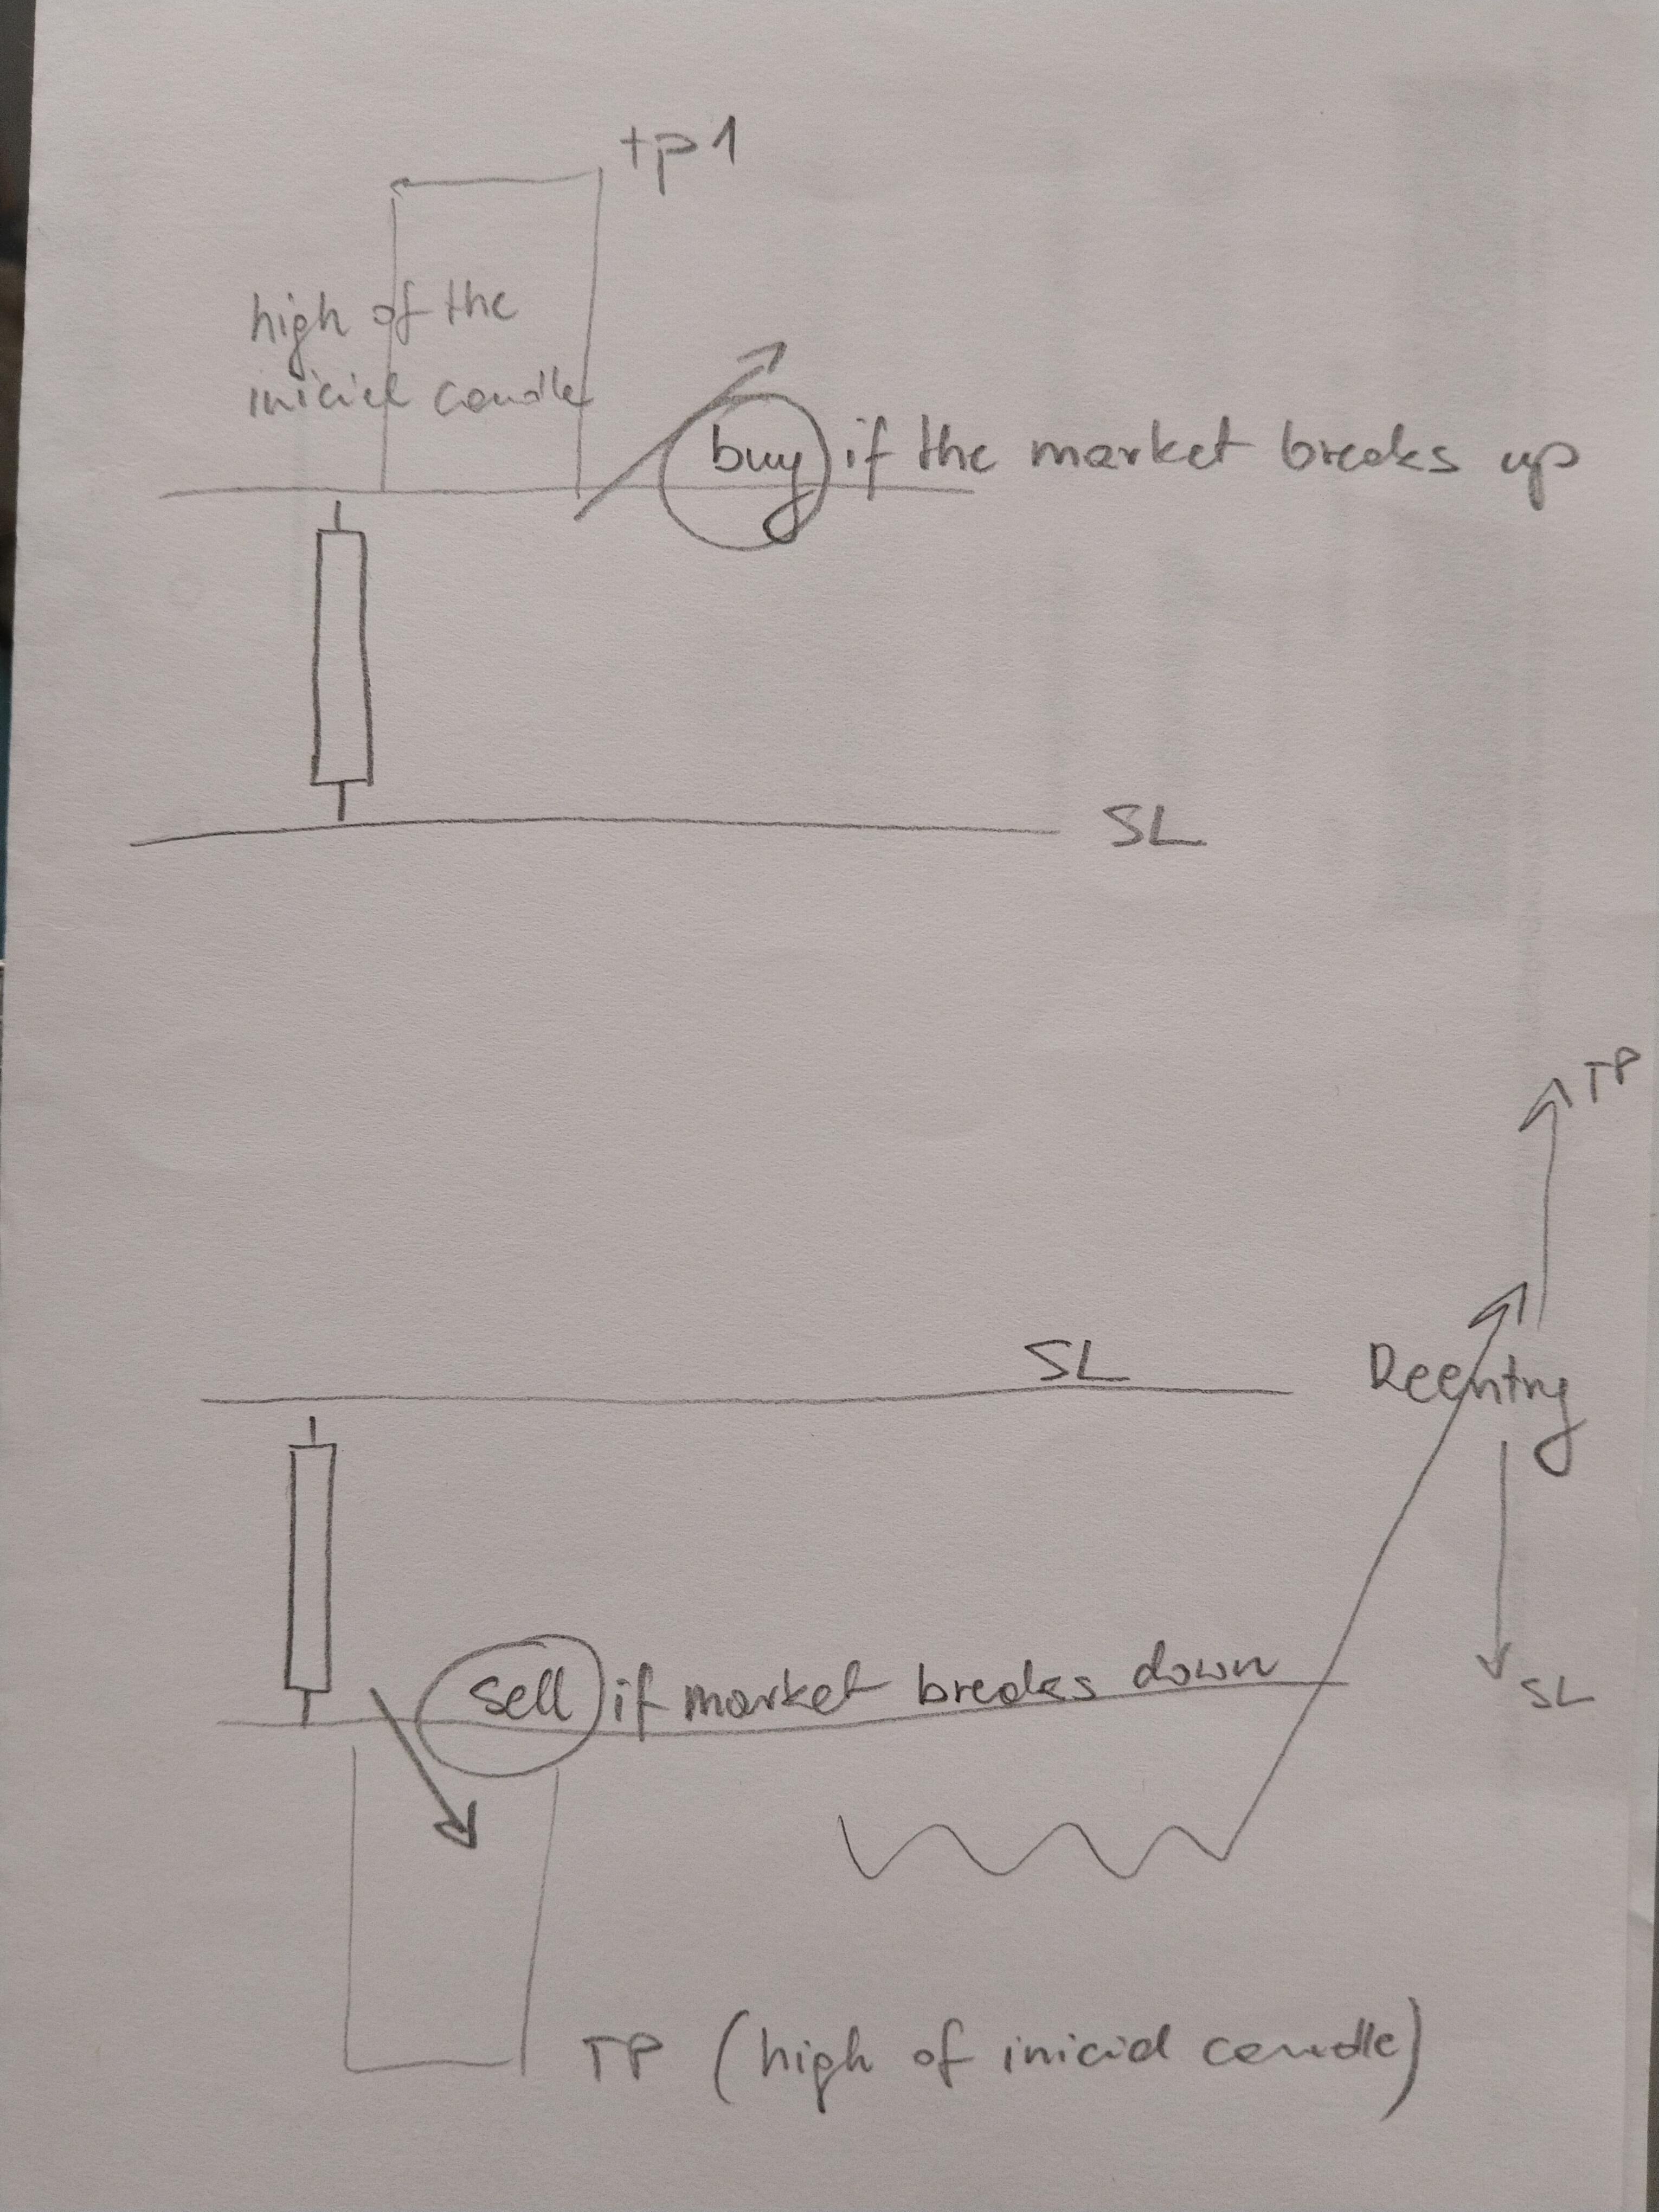 tp1
high of the
iniciel candle
buy if the market breaks up
SL
TP
SL
Reentry
sell if market breaks down
SL
TP (high of inicial candle)